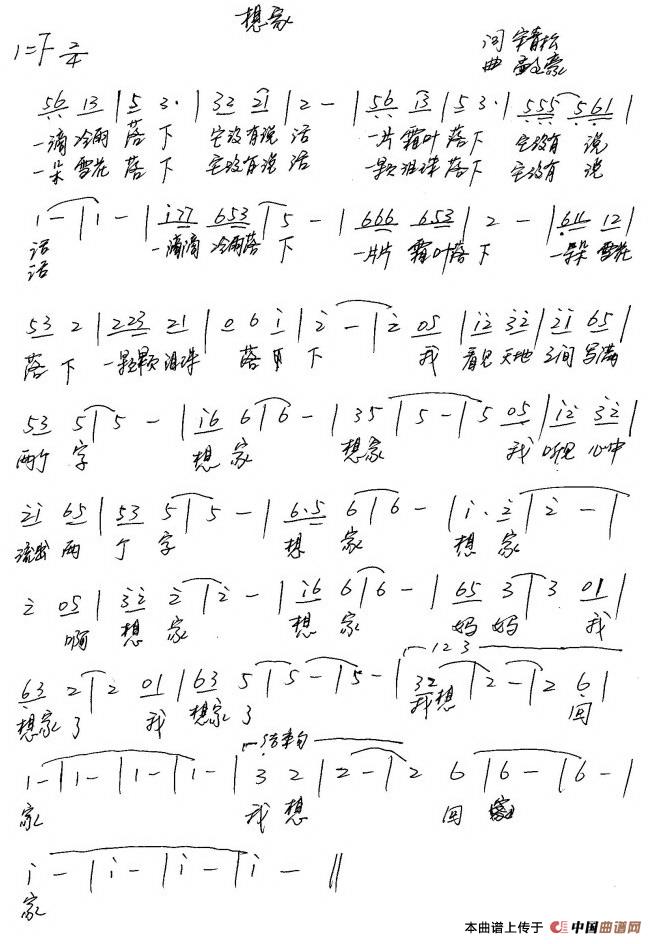 想家
1=F 2/4
词 宇青松
曲
56 13 | 5 3· | 32 21 | 2 - | 56 13 | 53· | 555 561 |
一滴 冷雨 落 下 它没有说 话 一片 霜叶 落下 它没有 说
一朵 雪花 落 下 它没有说 话 一颗 泪珠 落下 它没有 说
1 - | 1 - | i77 653 | 5 - | 666 653 | 2 - | 611 12 |
话 一滴滴 冷雨落 下 一片片 霜叶落 下 一朵朵 雪花
话
53 2 | 223 21 | 0 6 i | 2 - | 2 05 | i2 32 | 2i 65 |
落 下 一颗颗 泪珠 落 下 我 看见 天地 之间 写满
53 5 | 5 - | i6 6 | 6 - | 35 | 5 - | 5 05 | i2 32 |
两个 字 想 家 想家 我 听见 心中
2i 65 | 53 5 | 5 - | 6·5 6 | 6 - | i· 2 | 2 - |
流出 两 个 字 想 家 想 家
2 05 | 32 2 | 2 - | i6 6 | 6 - | 65 3 | 3 01 |
啊 想 家 想 家 妈 妈 我
1 2 3
63 2 | 2 01 | 63 5 | 5 - | 5 - | 32 | 2 - | 2 6 |
想家 了 我 想家 了 我想 回
结束句
1 - | 1 - | 1 - | 1 - | 1 - | 3 2 | 2 - | 2 6 | 6 - | 6 - |
家 我 想 回
i - | i - | i - | i - ‖
家
本曲谱上传于 中国曲谱网